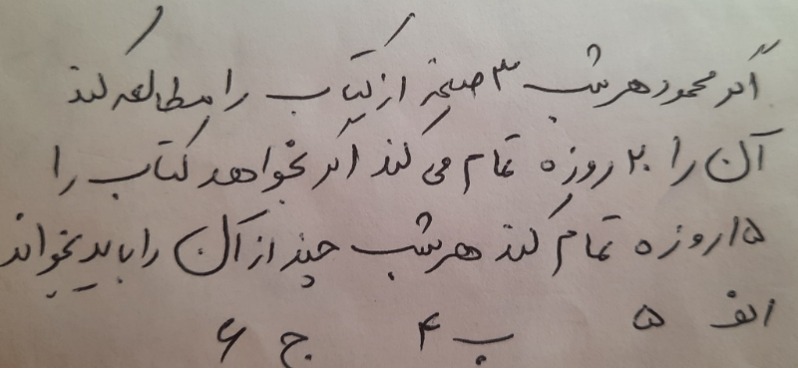 اگر محمود هر شب ۳ صفحه از کتاب را مطالعه کند
آن را ۲۰ روزه تمام می کند اگر بخواهد کتاب را
۱۵ روزه تمام کند هر شب چند از آن را باید بخواند
الف ۵ ب ۴ ج ۶